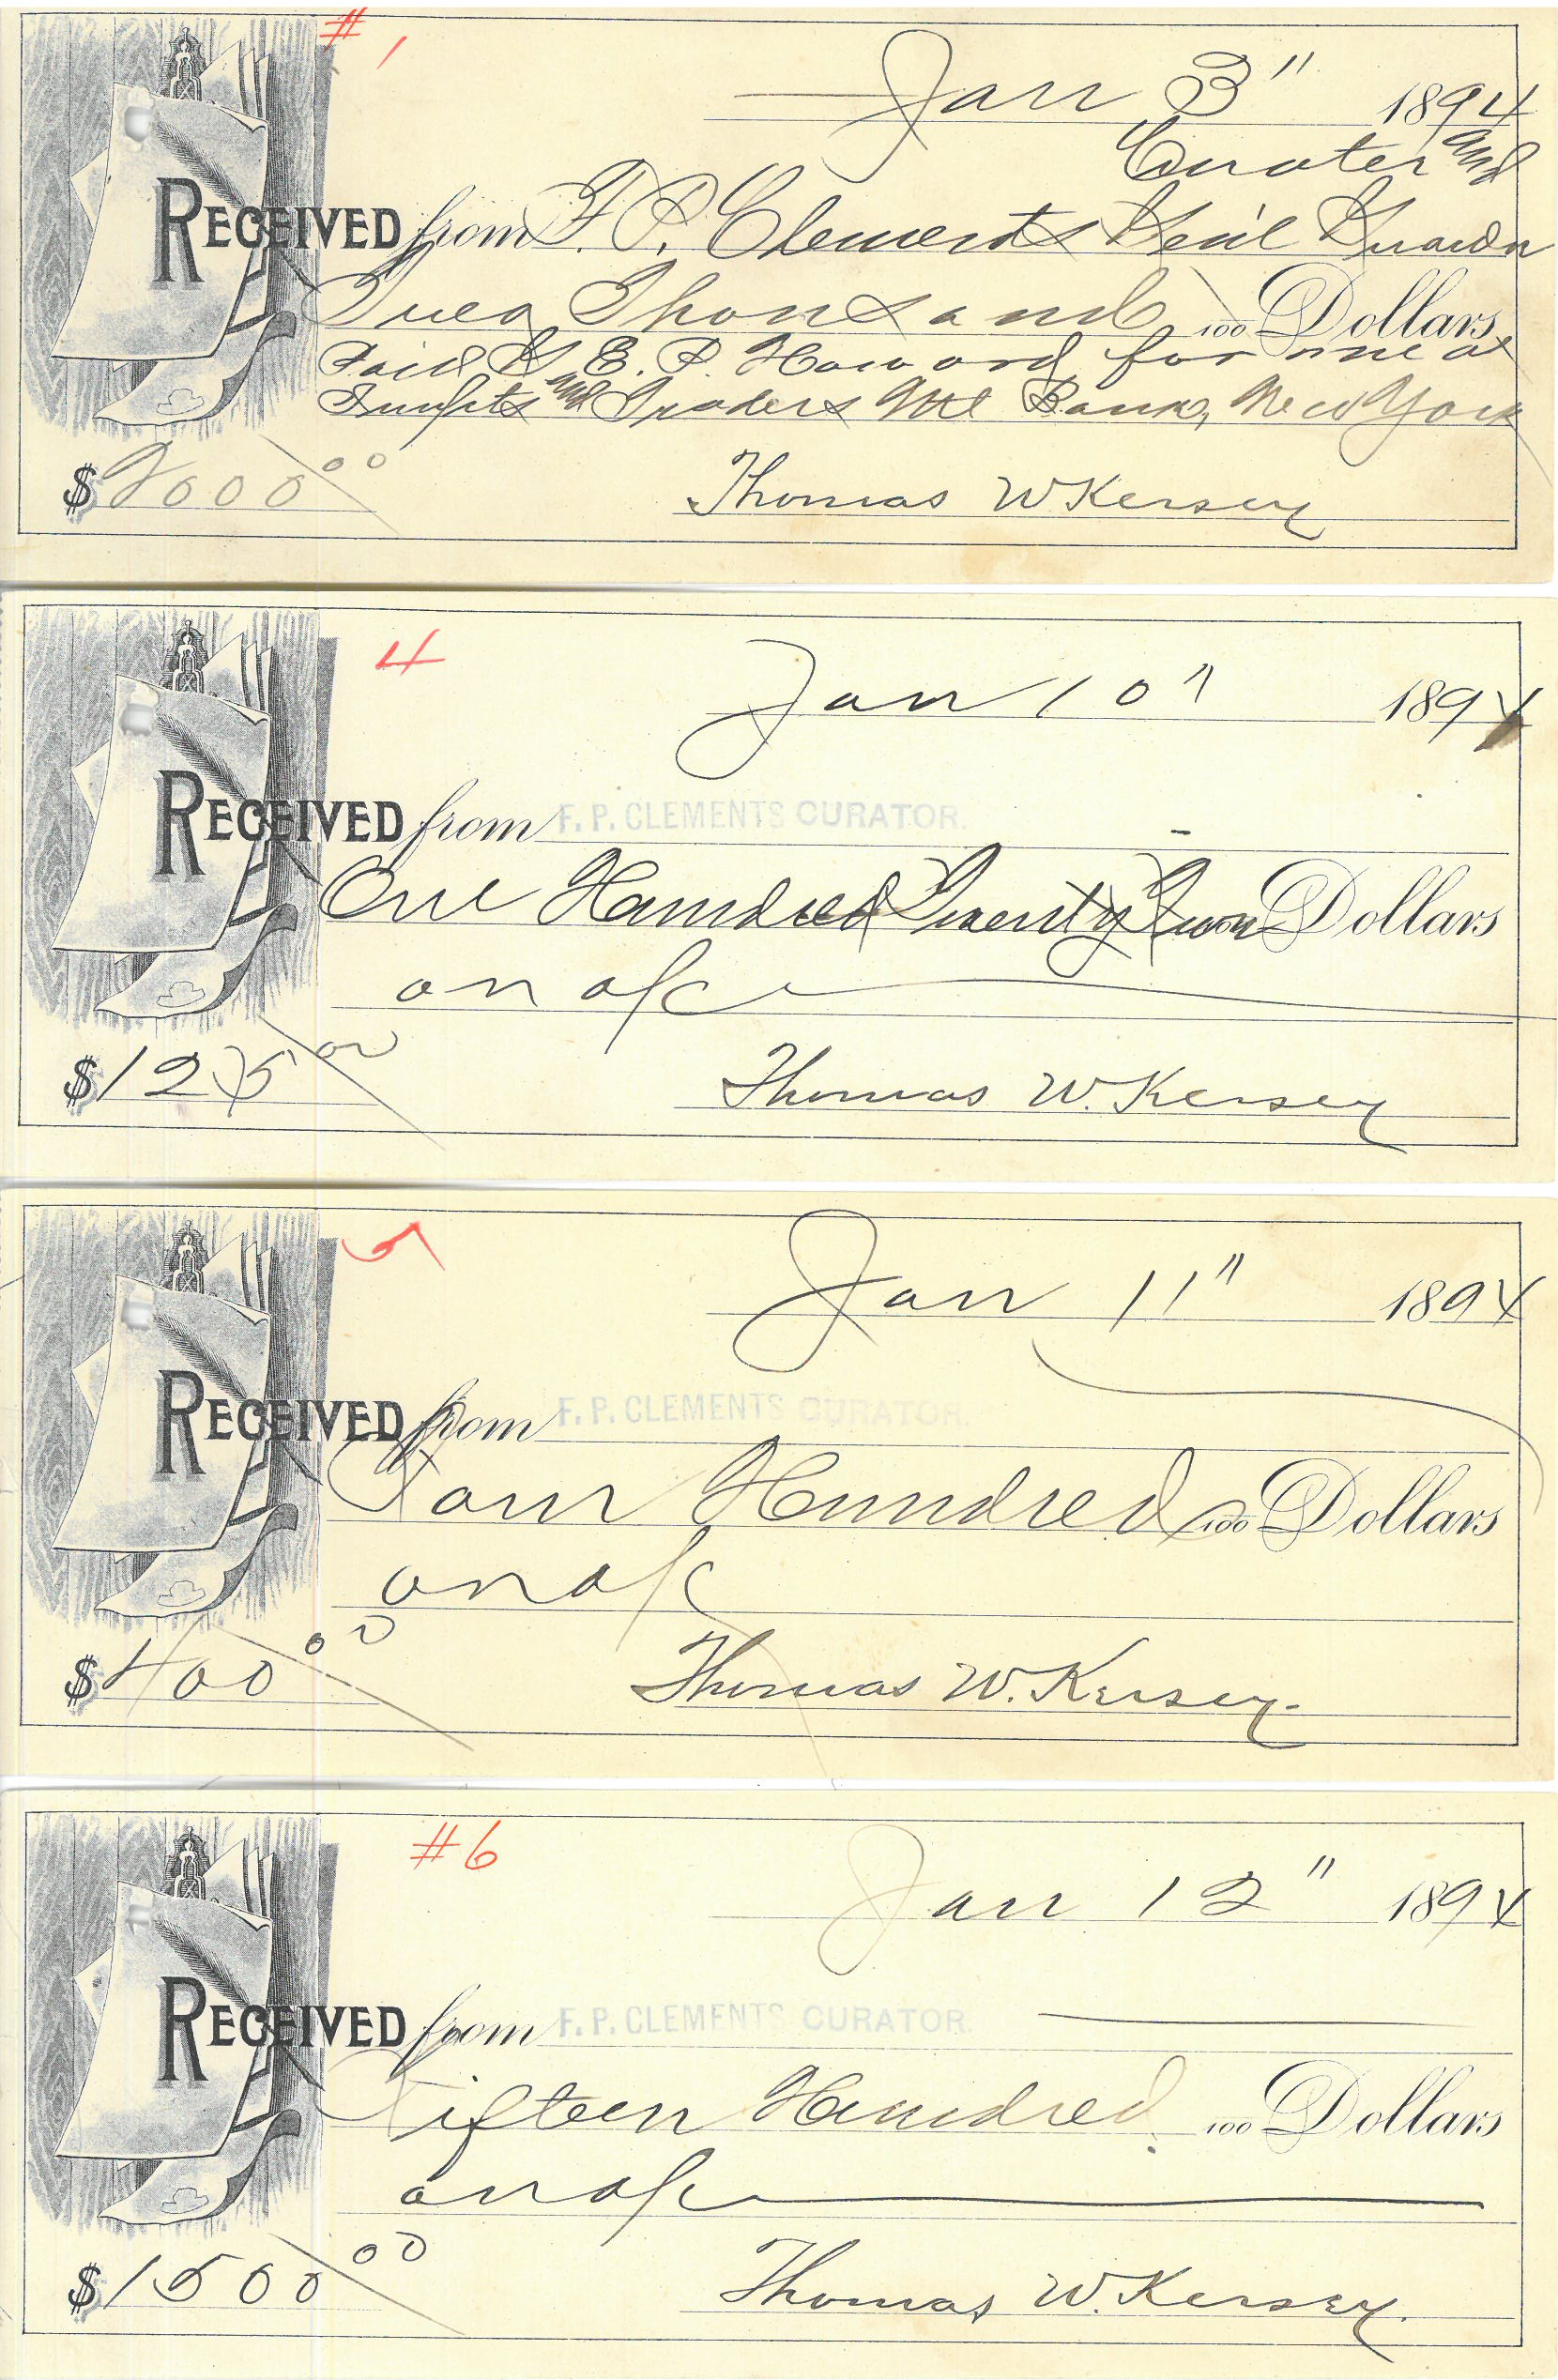 # 1
Jan 3" 1894
Curater and
RECEIVED from F. P. Clements Gen'l Guardn
Two Thousand 100 Dollars
Paid E. P. Howard for me at
and Traders Ntl Bank, New York
$2000 00 Thomas W Kersey
4
Jan 10" 1894
RECEIVED from F. P. CLEMENTS CURATOR.
One Hundred Twenty Dollars
on a/c
$125 00 Thomas W. Kersey
5
Jan 11" 1894
RECEIVED from F. P. CLEMENTS CURATOR.
Four Hundred 100 Dollars
on a/c
$400 00 Thomas W. Kersey.
#6
Jan 12" 1894
RECEIVED from F. P. CLEMENTS CURATOR.
Fifteen Hundred 100 Dollars
on a/c
$1500 00 Thomas W. Kersey.